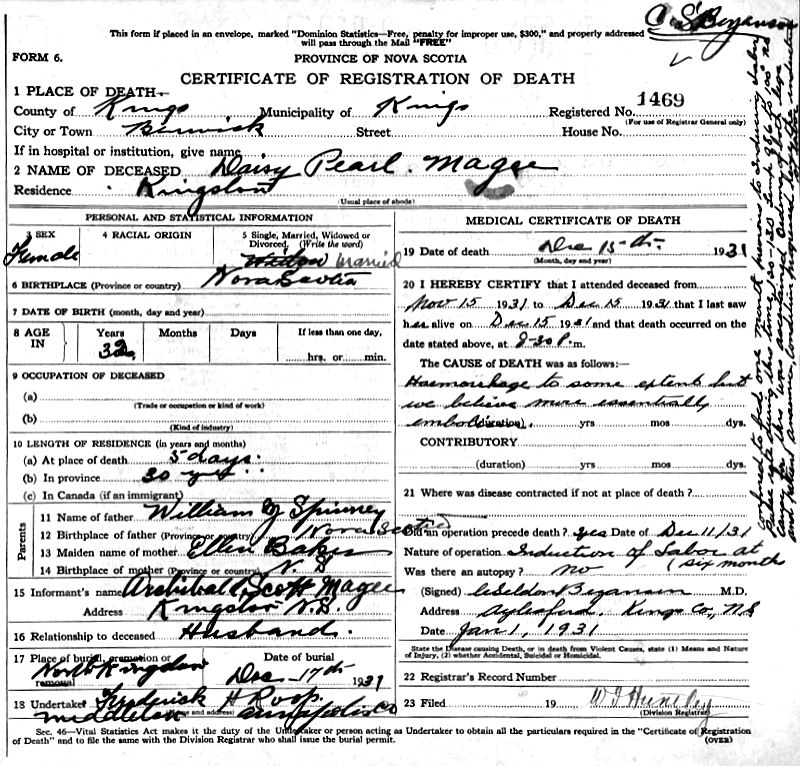 C. S. Bezanson
This form if placed in an envelope, marked "Dominion Statistics—Free, penalty for improper use, $300," and properly addressed
will pass through the Mail "FREE"
FORM 6.
PROVINCE OF NOVA SCOTIA
CERTIFICATE OF REGISTRATION OF DEATH
1 PLACE OF DEATH—
County of Kings Municipality of Kings Registered No. 1469
(For use of Registrar General only)
City or Town Berwick Street House No.
If in hospital or institution, give name
2 NAME OF DECEASED Daisy Pearl Magee
Residence Kingston
(Usual place of abode)
PERSONAL AND STATISTICAL INFORMATION
3 SEX 4 RACIAL ORIGIN 5 Single, Married, Widowed or Divorced, (Write the word)
Female Widow Married
6 BIRTHPLACE (Province or country) Nova Scotia
7 DATE OF BIRTH (month, day and year)
8 AGE IN Years Months Days If less than one day,
32 hrs. or min.
9 OCCUPATION OF DECEASED
(a)
(Trade or occupation or kind of work)
(b)
(Kind of industry)
10 LENGTH OF RESIDENCE (in years and months)
(a) At place of death 5 days
(b) In province 30 yrs
(c) In Canada (if an immigrant)
Parents
11 Name of father William Spinney
12 Birthplace of father (Province or country) Nova Scotia
13 Maiden name of mother Ellen Baker
14 Birthplace of mother (Province or country) N. S
15 Informant's name Archibal Scott Magee
Address Kingston N.S.
16 Relationship to deceased Husband.
17 Place of burial, cremation or removal Date of burial
North Kingston Dec 17th 1931
18 Undertaker Fredrick H Roop
(Name and address)
Middleton Annapolis Co
MEDICAL CERTIFICATE OF DEATH
19 Date of death Dec 15th 1931
(Month, day and year)
20 I HEREBY CERTIFY that I attended deceased from
Nov 15 1931 to Dec 15 1931 that I last saw
her alive on Dec 15 1931 and that death occurred on the
date stated above, at 8-30 P.m.
The CAUSE OF DEATH was as follows:—
Haemorrhage to some extent but
we believe more essentially
(duration) yrs mos dys.
CONTRIBUTORY
(duration) yrs mos dys.
21 Where was disease contracted if not at place of death?
Did an operation precede death? yes Date of Dec 11/31
Nature of operation Induction of Labor at
(six months
Was there an autopsy? No
(Signed) Bezanson M.D.
Address Aylesford, Kings Co, NS
Date Jan 1, 1931
State the Disease causing Death, or in death from Violent Causes, state (1) Means and Nature
of Injury, (2) whether Accidental, Suicidal or Homicidal.
22 Registrar's Record Number
23 Filed 19
(Division Registrar)
Sec. 46—Vital Statistics Act makes it the duty of the Undertaker or person acting as Undertaker to obtain all the particulars required in the "Certificate of Registration
of Death" and to file the same with the Division Registrar who shall issue the burial permit.
(OVER)